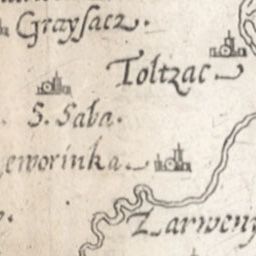 Graysacz.
Toltzac
S. Saba.
eworinka.
Zarweny